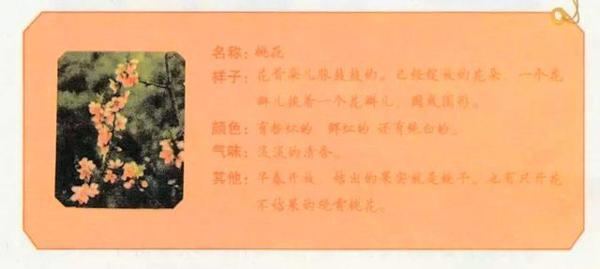 名称：桃花
样子：花骨朵儿胀鼓鼓的。已经绽放的花朵，一个花
瓣儿挨着一个花瓣儿，围成圆形。
颜色：有粉红的 鲜红的 还有纯白的。
气味：淡淡的清香。
其他：早春开放 结出的果实就是桃子。也有只开花
不结果的观赏桃花。